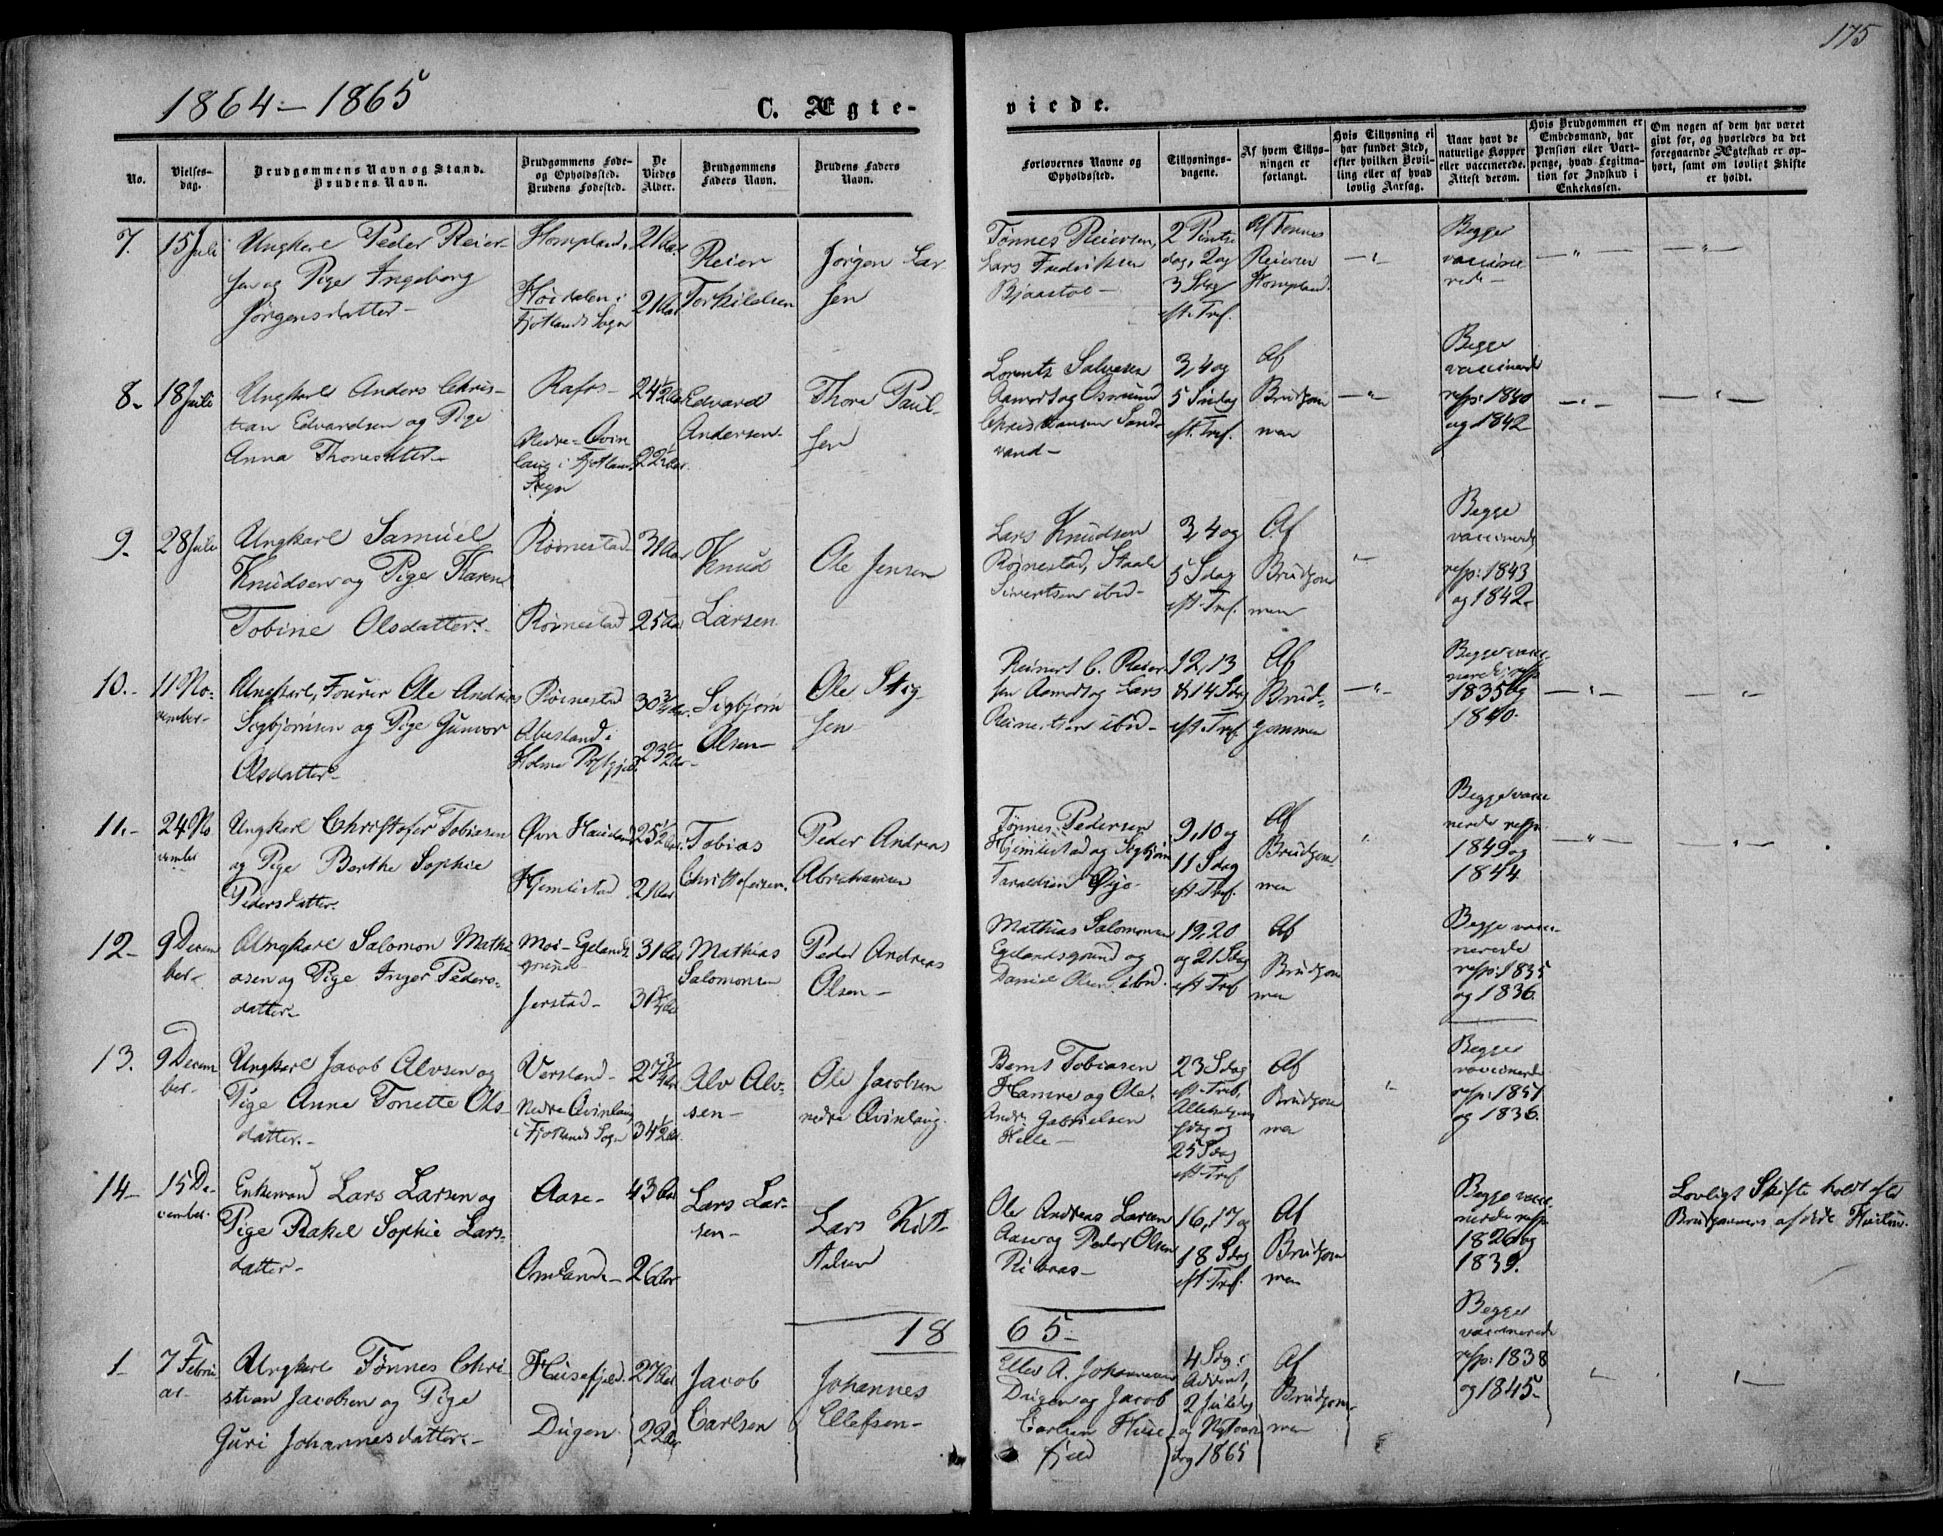 175
1864 – 1865
C. Ægte-
viede.
No.
Vielses-
dag.
Brudgommens Navn og Stand.
Brudens Navn.
Brudgommens Føde-
og Opholdssted.
Brudens Fødested.
De
Viedes
Alder.
Brudgommens
Faders Navn.
Brudens Faders
Navn.
Forlovernes Navne og
Opholdssted.
Tillysnings-
dagene.
Af hvem Tillys-
ningen er
forlangt.
Hvis Tillysning ei
har fundet Sted,
efter hvilken Bevil-
ling eller af hvad
lovlig Aarsag.
Naar havt de
naturlige Kopper
eller vaccinerede.
Attest derom.
Hvis Brudgommen er
Embedsmand, har
Pension eller Vart-
penge, hvad Legitima-
tion for Indskud i
Enkekassen.
Om nogen af dem har været
givt for, og hvorledes da det
foregaaende Ægteskab er op-
hørt, samt om lovligt Skifte
er holdt.
7.
15 Juli
Ungkarl Peder Reier-
sen og Pige Ingeborg
Jörgensdatter -
Hompland.
Höidalen i
Fjotlands Sogn
21 Aar
21 Aar
Reier
Torkildsen
Jörgen Lar
sen
Tönnes Reiersen,
Lars Fredriksen
Bjaastoe -
2 Pintse
dag, 2 og
3 Sdag
eft. Tref.
Af Tønnes
Reiersen
Hompland.
Begge
vaccine
rede -
8-
18 Juli
Ungkarl Anders Chris-
tian Edvardsen og Pige
Anna Thoresdtter -
Rafos -
Nedre-Qvin
laug i Fjotlands
Sogn
24 1/2 Aar
22 1/2 Aar
Edvard
Andersen
Thore Paul-
sen
Lorents Salvesen
Aamodt og Osmund
Christiansen Sand-
vand -
3, 4 og
5 Sndag
eft. Tref.
Af
Brudgom
men
Begge
vaccinerede
resp: 1840
og 1842
9.
28 Juli
Ungkarl Samuel
Knudsen og Pige Karen
Tobine Olsdatter. -
Röinestad
Röinestad
31 Aar
25 Aar
Knud
Larsen
Ole Jensen
Lars Knudsen
Röinestad, Staale
Sivertsen ibid -
3, 4 og
5 Sdag
eft. Tref.
Af
Brudgom
men
Begge
vaccinerede
resp: 1843
og 1842.
10. -
11 No-
vember -
Ungkarl, Fourer Ole Andreas
Sigbjörnsen og Pige Gunvor
Olsdatter -
Röinestad
i
Holme Prstgjeld
30 3/4 Aar
23 1/2 Aar
Sigbjörn
Olsen -
Ole Stig
sen
Reinert C. Reier-
sen Aamodt og Lars
Reinertsen ibid -
12, 13
& 14 Sdag
eft. Tref
Af
Brud-
gommen
Begge vacci-
nerede resp
1835 og
1840.
11. -
24 No
vember
Ungkarl Christofer Tobiasen
og Pige Berthe Sophie
Pedersdatter.
Øvre
25 1/2 Aar
21 Aar
Tobias
Christofersen.
Peder Andreas
Abrahamsen
Tønnes Pedersen
og Sigbjörn
Taraldsen Øyo -
9, 10 og
11 Sdag
eft. Tref.
Af
Brudgom-
men
Begge vacci
nerede resp.
1849 og
1844
12 -
9 Decem
ber -
Ungkarl Salomon Mathi
asen og Pige Inger Peders-
datter -
Moi - Egelands
grund -
Jerstad -
31 Aar
Mathias
Salomonsen
Peder Andreas
Olsen -
Mathias Salomonsen
Egelandsgrund og
Daniel Olsen ibid.
19, 20
og 21 Sdag
eft. Tref
Af
Brudgom
men
Begge vacci-
nerede
resp: 1835
og 1836
13.
9 Decem
ber -
Ungkarl Jacob Alvsen og
Pige Anne Tonette Ols-
datter. -
Versland -
Nedre Qvinlaug
i Fjotlands Sogn
27 3/4 Aar
34 1/2 Aar
Alv Alv-
sen -
Ole Jacobsen
nedre Qvinlaug.
Bernt Tobiasen
Hamre og Ole
Andr. Gabrielsen
Helle -
23 Sdag
eft. Tref,
Allehelgens
sdag og
25 Sdag
eft. Tref
Af
Brudgom
men
Begge
vaccinerede
resp: 1851
og 1836.
14 -
15 De-
cember.
Enkemand Lars Larsen og
Pige Rakel Sophie Lars-
datter -
Aase -
Omland -
43 Aar
26 Aar
Lars Lar-
sen -
Lars
Ole Andreas Larsen
Aase og Peder Olsen
16, 17 og
18 Sdag
eft. Tref.
Af
Brudgom
men
Begge vacci-
nerede resp
1826 og
1839.
Lovligt Skifte holdt efter
Brudgommens afdøde Hustru.
18
65 -
1 -
7 Febru
ar -
Ungkarl Tønnes Chri
stian Jacobsen og Pige
Guri Johannesdatter. -
Husefjeld.
Dugen
27 Aar
22 Aar
Jacob
Carlsen
Johannes
Ellefsen -
Ellef A. Johannesen
Dugen og Jacob
Carlsen Huse
fjeld
4 Sdg i
Advent,
2 Juledag
og Nytaars
dag 1865
Af
Brudgom-
men
Begge
vaccinerede
resp: 1838
og 1845 -